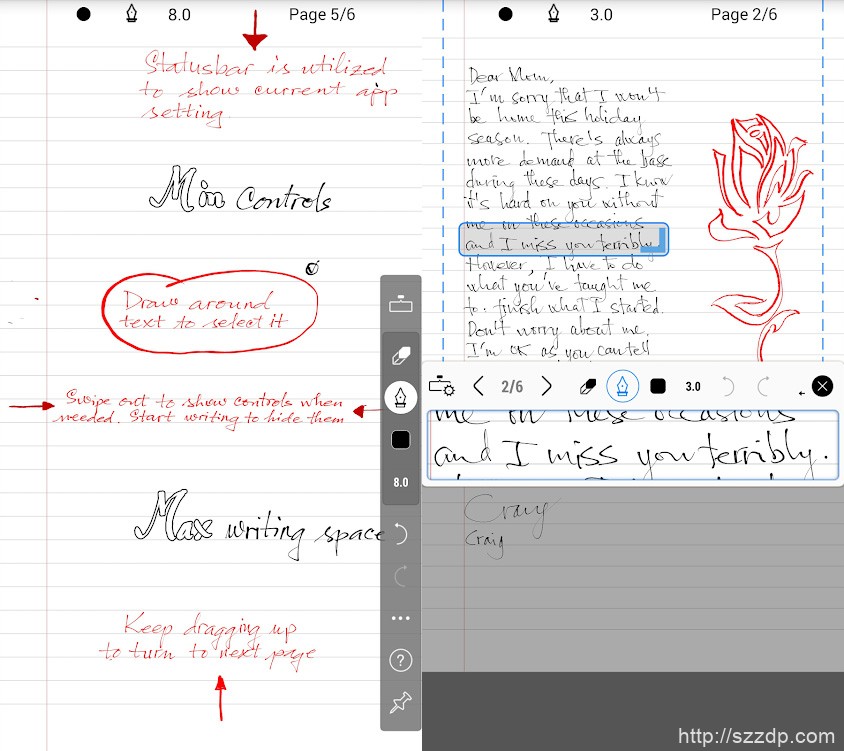 8.0 Page 5/6
Statusbar is utilized
to show current app
setting.
Min controls
Draw around
text to select it
Swipe out to show controls when
needed. Start writing to hide them
8.0
Max writing space
Keep dragging up
to turn to next page
3.0 Page 2/6
Dear Mom,
I'm sorry that I won't
be home this holiday
season. There's always
more demand at the base
during these days. I know
it's hard on you without
me on these occasions
and I miss you terribly.
However, I have to do
what you've taught me
to. finish what I started.
Don't worry about me.
I'm OK as you can tell
2/6 3.0
me on these occasions
and I miss you terribly.
Craig
Craig
http://szzdp.com